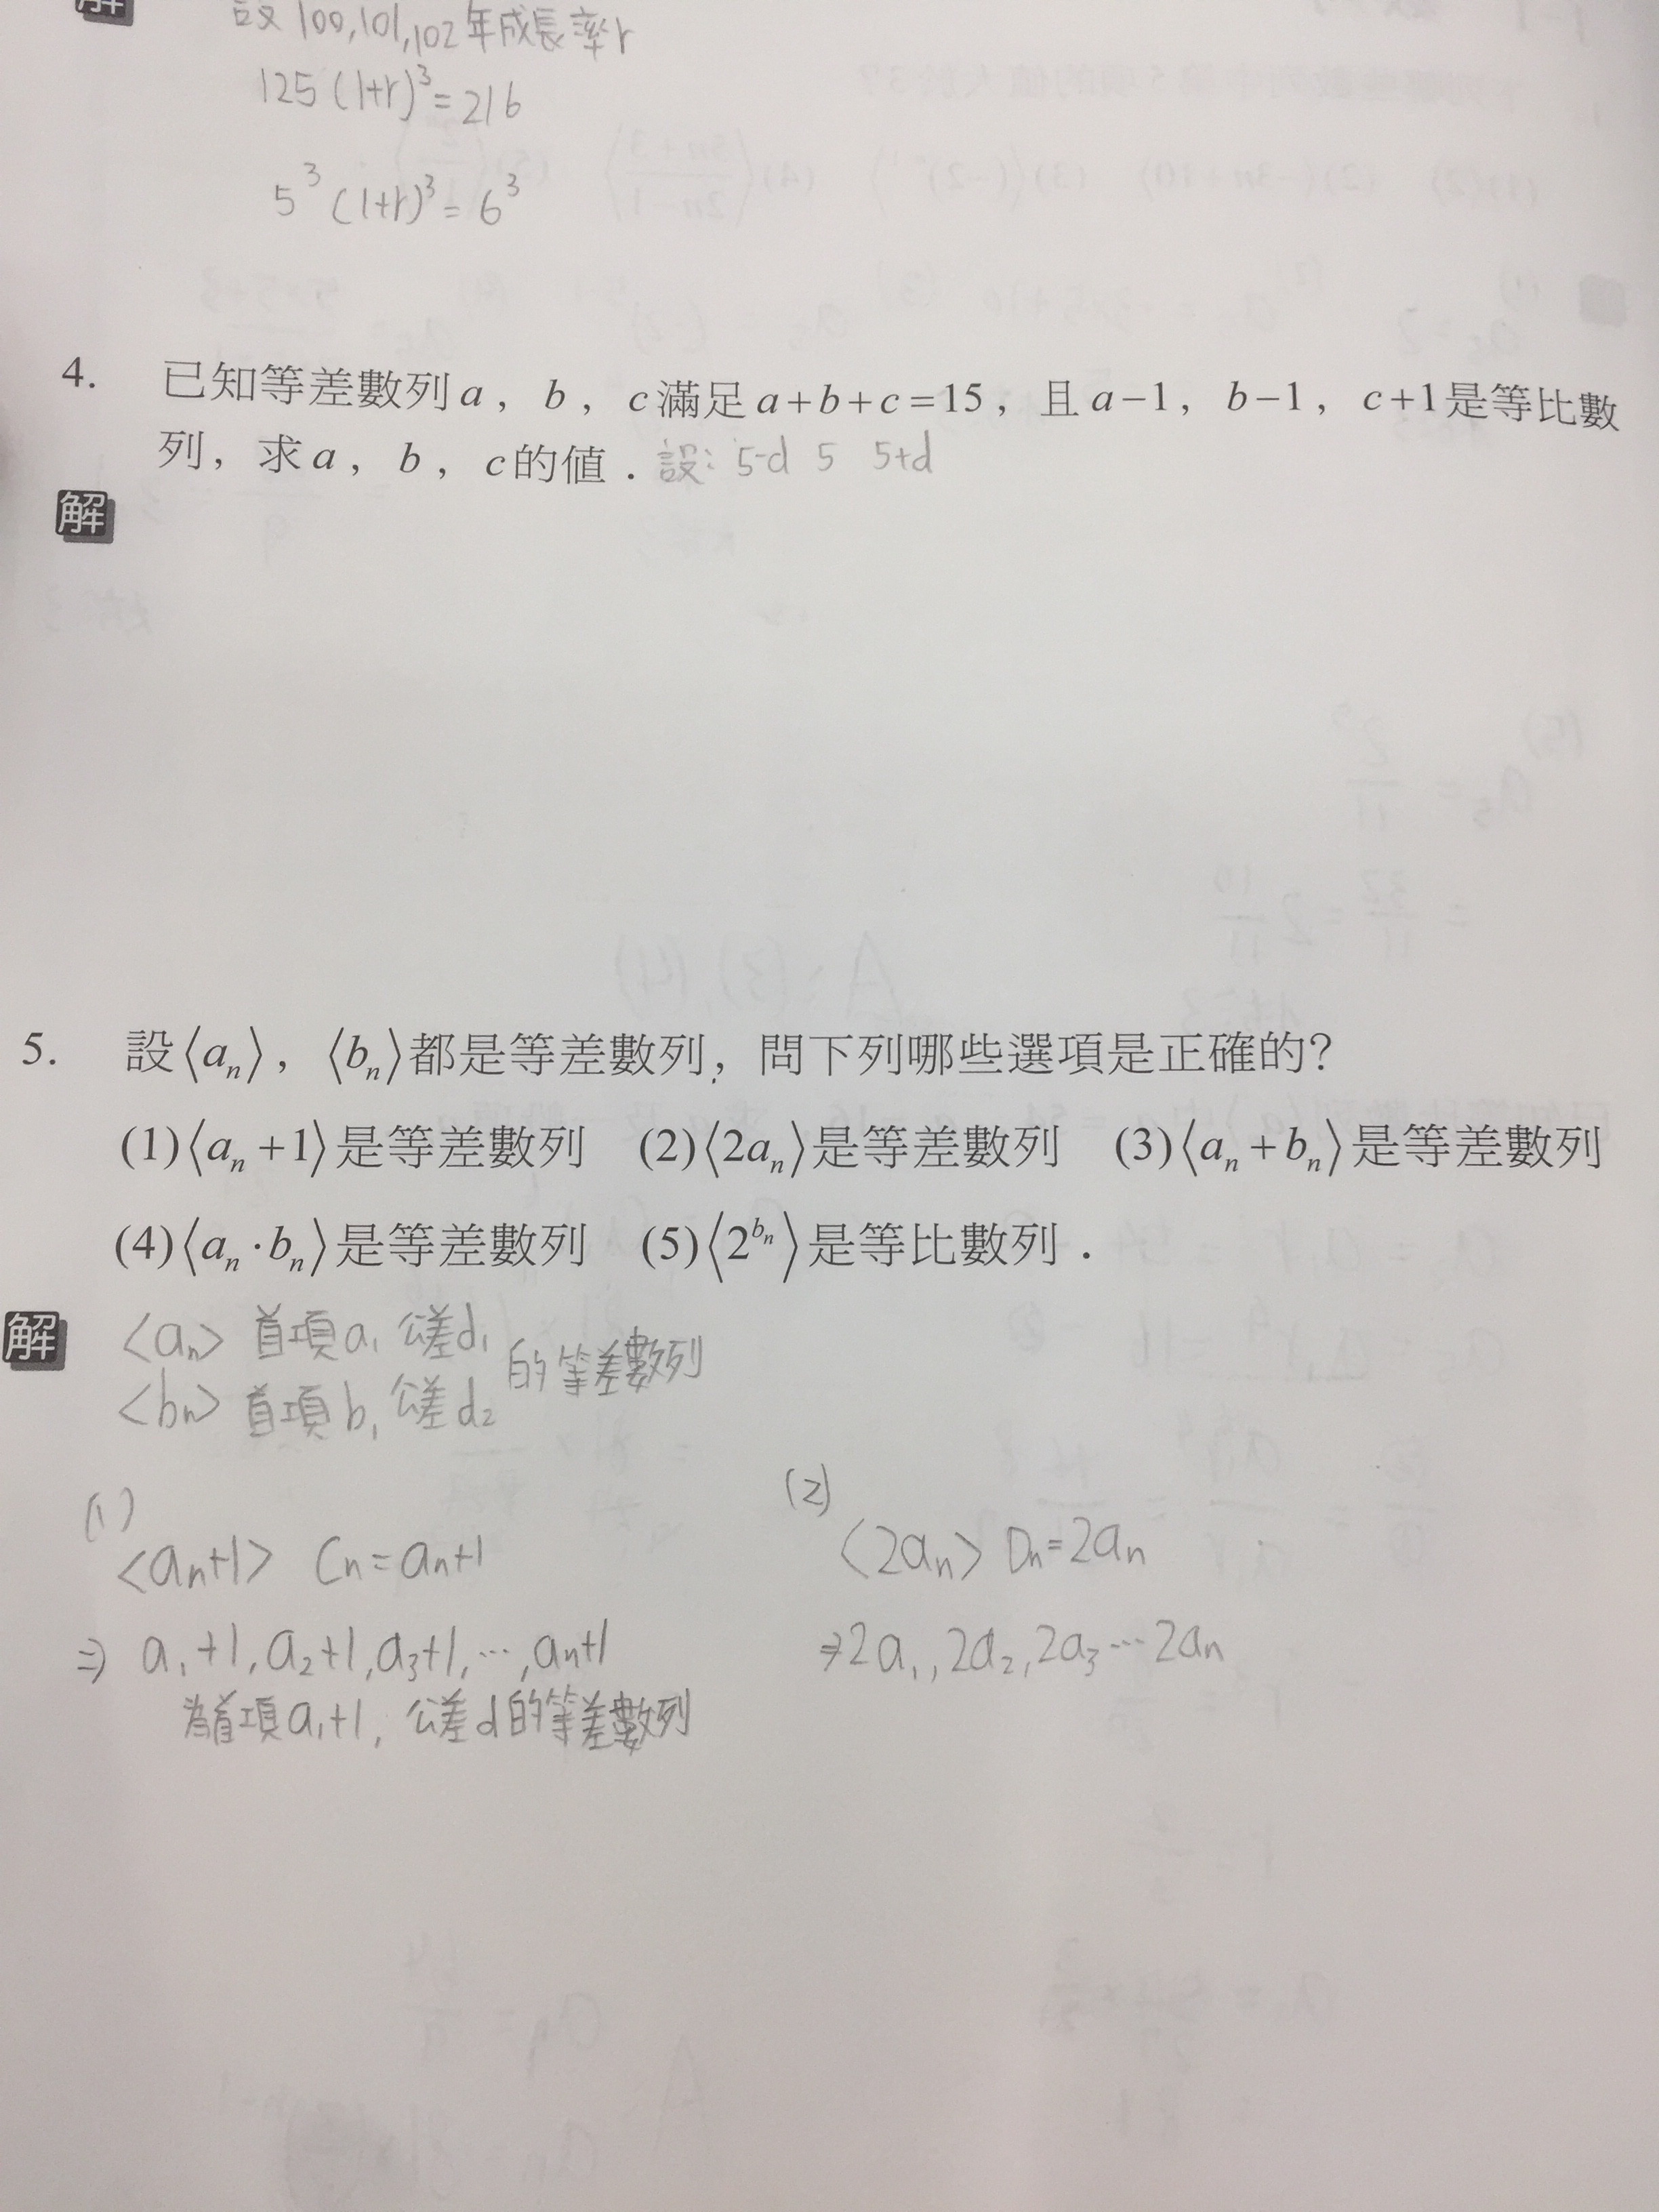 解
設100,101,102年成長率r
125(1+r)³=216
5³(1+r)³=6³
4. 已知等差數列a，b，c滿足a+b+c=15，且a−1，b−1，c+1是等比數
列，求a，b，c的值．設:5-d 5 5+d
解
5. 設⟨aₙ⟩，⟨bₙ⟩都是等差數列，問下列哪些選項是正確的?
(1)⟨aₙ+1⟩是等差數列 (2)⟨2aₙ⟩是等差數列 (3)⟨aₙ+bₙ⟩是等差數列
(4)⟨aₙ·bₙ⟩是等差數列 (5)⟨2^{bₙ}⟩是等比數列．
解
<aₙ> 首項a₁ 公差d₁
<bₙ> 首項b₁ 公差d₂
的等差數列
(1)
<aₙ+1> Cₙ=aₙ+1
⇒ a₁+1,a₂+1,a₃+1,…,aₙ+1
為首項a₁+1, 公差d的等差數列
(2)
<2aₙ> Dₙ=2aₙ
⇒2a₁,2a₂,2a₃…2aₙ